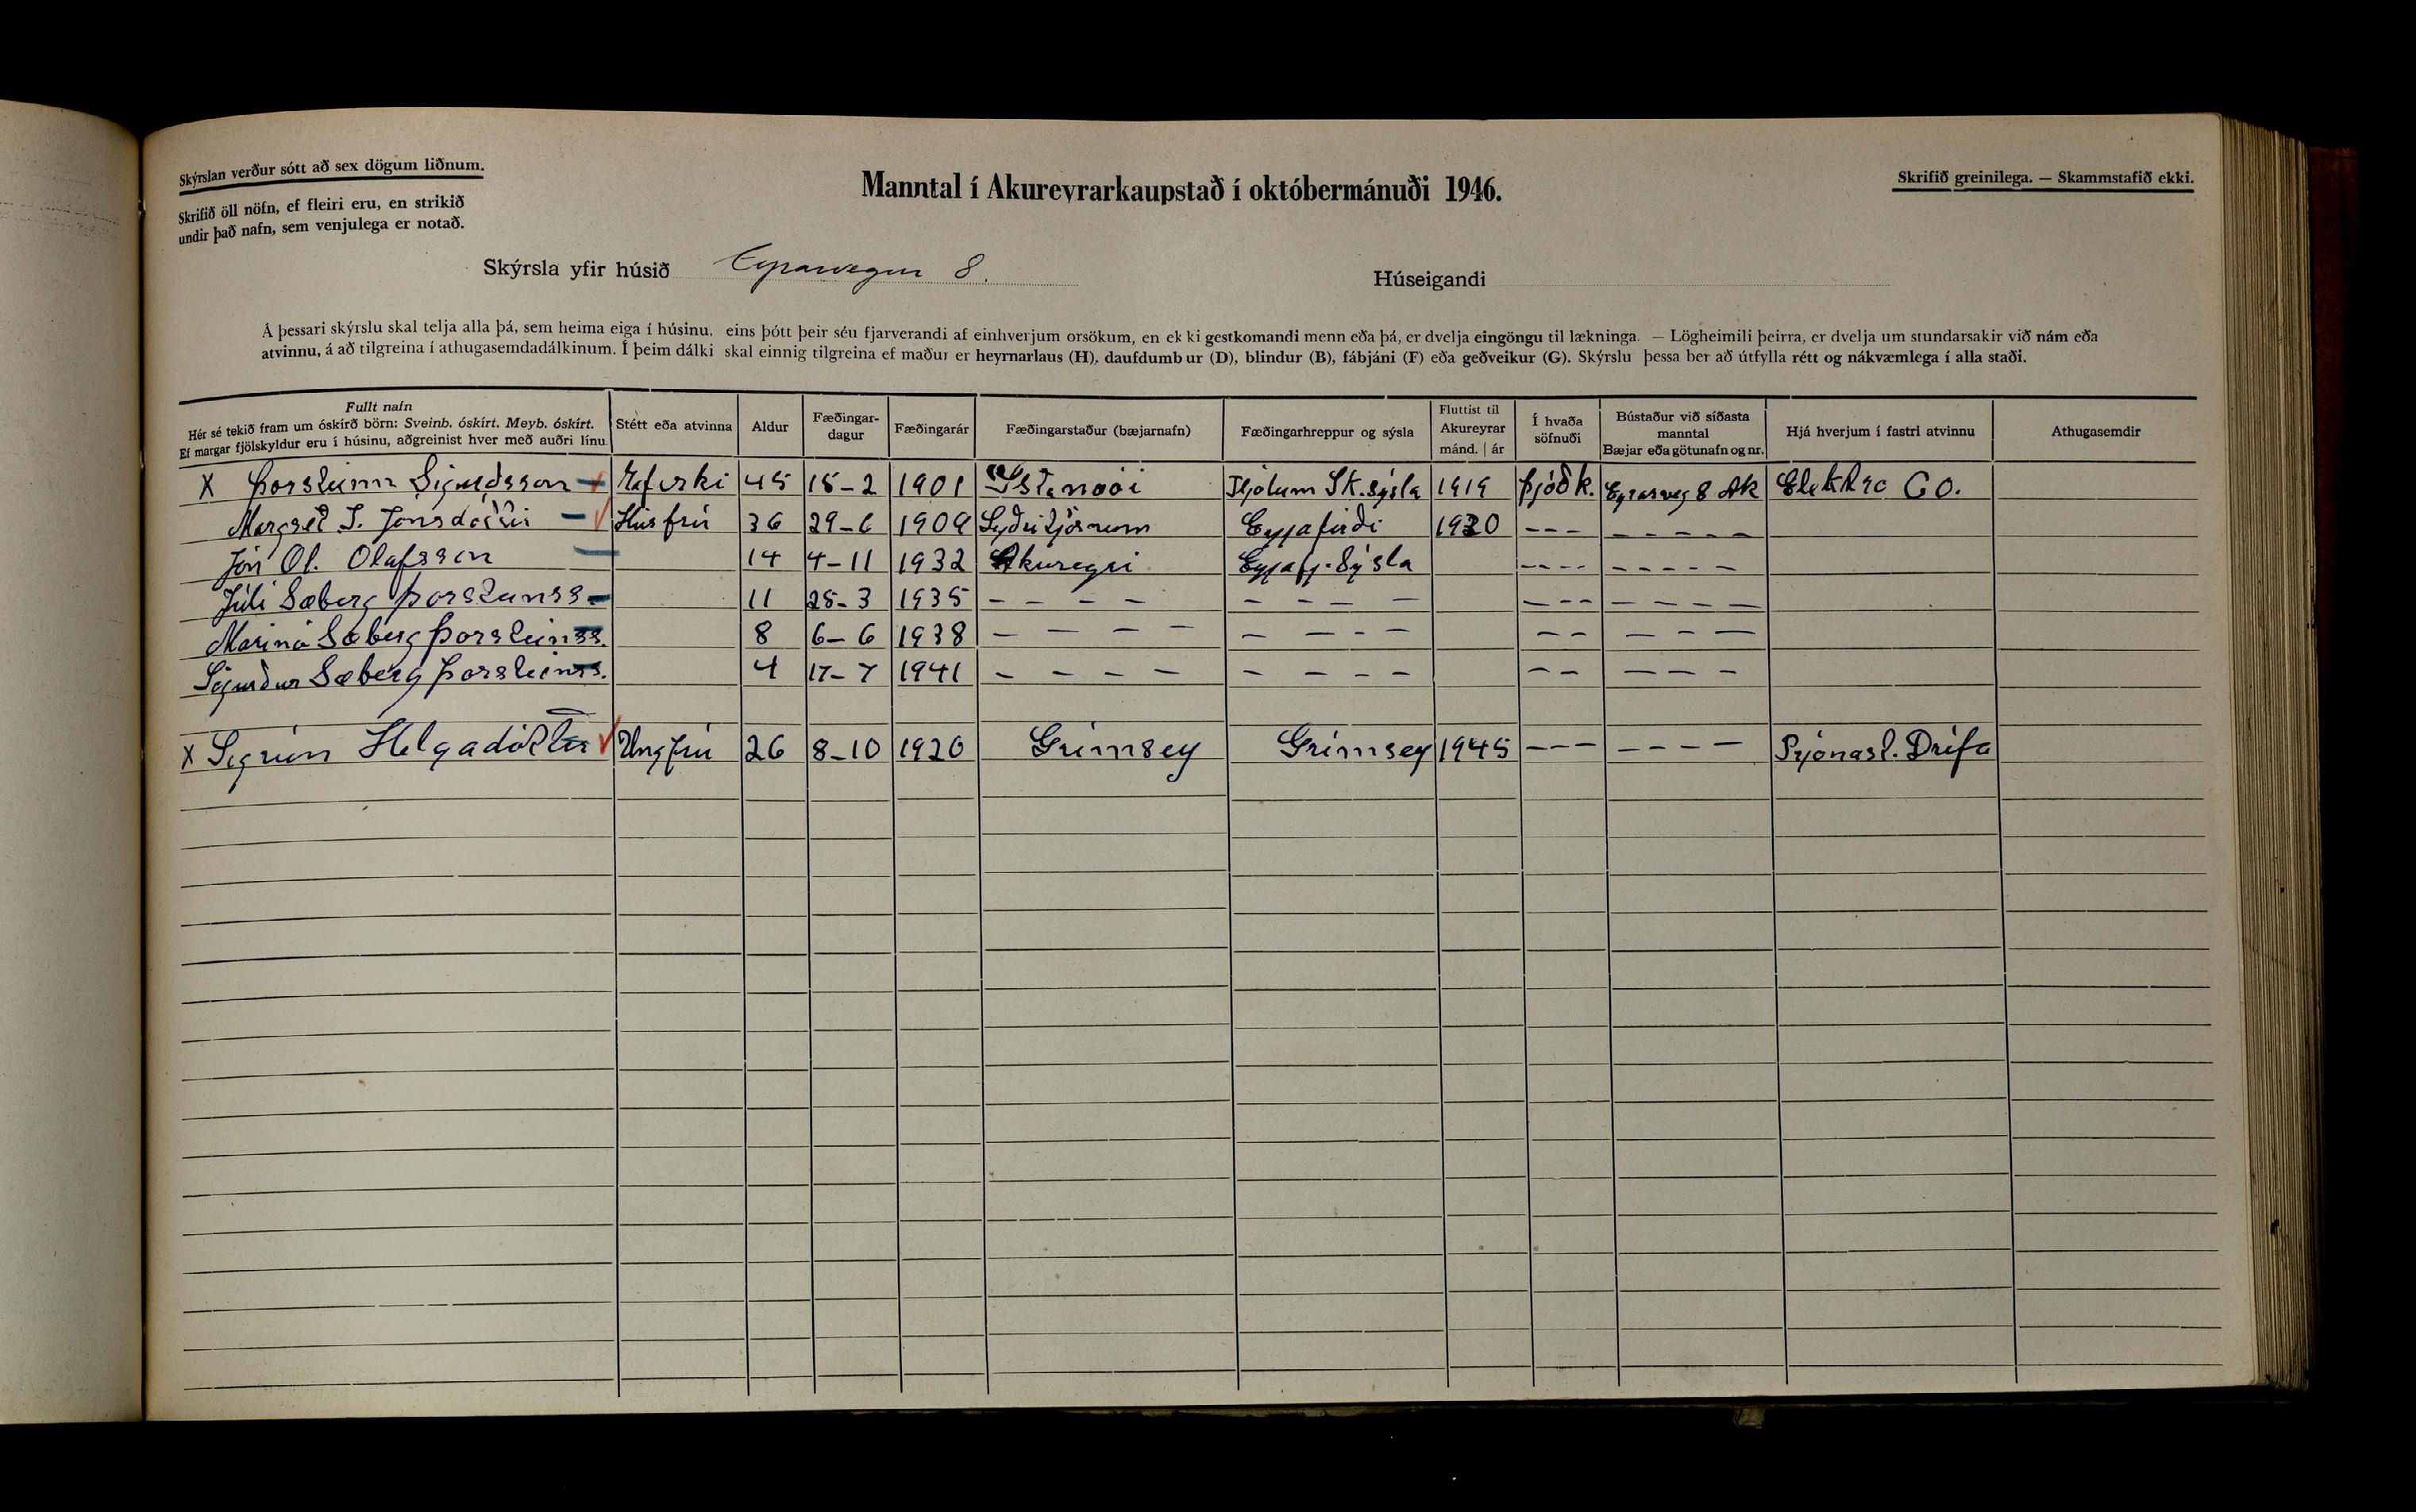 Skýrslan verður sótt að sex dögum liðnum.
Skrifið öll nöfn, ef fleiri eru, en strikið
undir það nafn, sem venjulega er notað.
Manntal í Akureyrarkaupstað í októbermánuði 1946.
Skrifið greinilega. — Skammstafið ekki.
Skýrsla yfir húsið Eyrarvegur 8.
Húseigandi
Á þessari skýrslu skal telja alla þá, sem heima eiga í húsinu, eins þótt þeir séu fjarverandi af einhverjum orsökum, en ekki gestkomandi menn eða þá, er dvelja eingöngu til lækninga. — Lögheimili þeirra, er dvelja um stundarsakir við nám eða
atvinnu, á að tilgreina í athugasemdadálkinum. Í þeim dálki skal einnig tilgreina ef maður er heyrnarlaus (H), daufdumbur (D), blindur (B), fábjáni (F) eða geðveikur (G). Skýrslu þessa ber að útfylla rétt og nákvæmlega í alla staði.
Fullt nafn
Hér sé tekið fram um óskírð börn: Sveinb. óskírt. Meyb. óskírt.
Ef margar fjölskyldur eru í húsinu, aðgreinist hver með auðri línu
Stétt eða atvinna
Aldur
Fæðingar-
dagur
Fæðingarár
Fæðingarstaður (bæjarnafn)
Fæðingarhreppur og sýsla
Fluttist til
Akureyrar
mánd. | ár
Í hvaða
söfnuði
Bústaður við síðasta
manntal
Bæjar eða götunafn og nr.
Hjá hverjum í fastri atvinnu
Athugasemdir
X Þorsteinn Sigurðsson 45 15-2 1901 Fljótum Sk.sýsla 1919 Þjóðk. Eyrarveg 8 Ak Elektro CO.
Margrét S. Jónsdóttir Húsfrú 36 29-6 1909 Syðritjörnum Eyjafirði 1920 --- -----
Jón Ól. Ólafsson 14 4-11 1932 Akureyri Eyjafj.sýsla ---- -----
Júlí Sæberg Þorsteinss 11 25-3 1935 ---- ---- --- ----
Marinó Sæberg Þorsteinss. 8 6-6 1938 ---- ---- -- ---
Sigurður Sæberg Þorsteinss. 4 17-7 1941 ---- ---- -- ---
X Sigrún Helgadóttir Ungfrú 26 8-10 1920 Grímsey Grímsey 1945 --- ---- Prjónast. Drífa